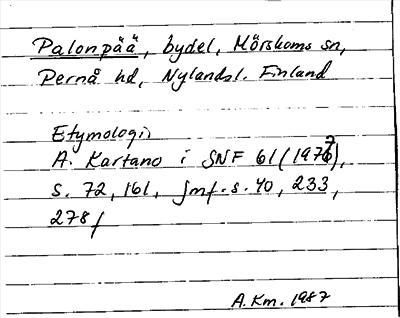 Palonpää, bydel, Mörskoms sn,
Pernå hd, Nylandsl. Finland
Etymologi:
A. Kartano i SNF 61 (1977),
s. 72, 161, jmf. s. 40, 233,
278 f
A.Km. 1987